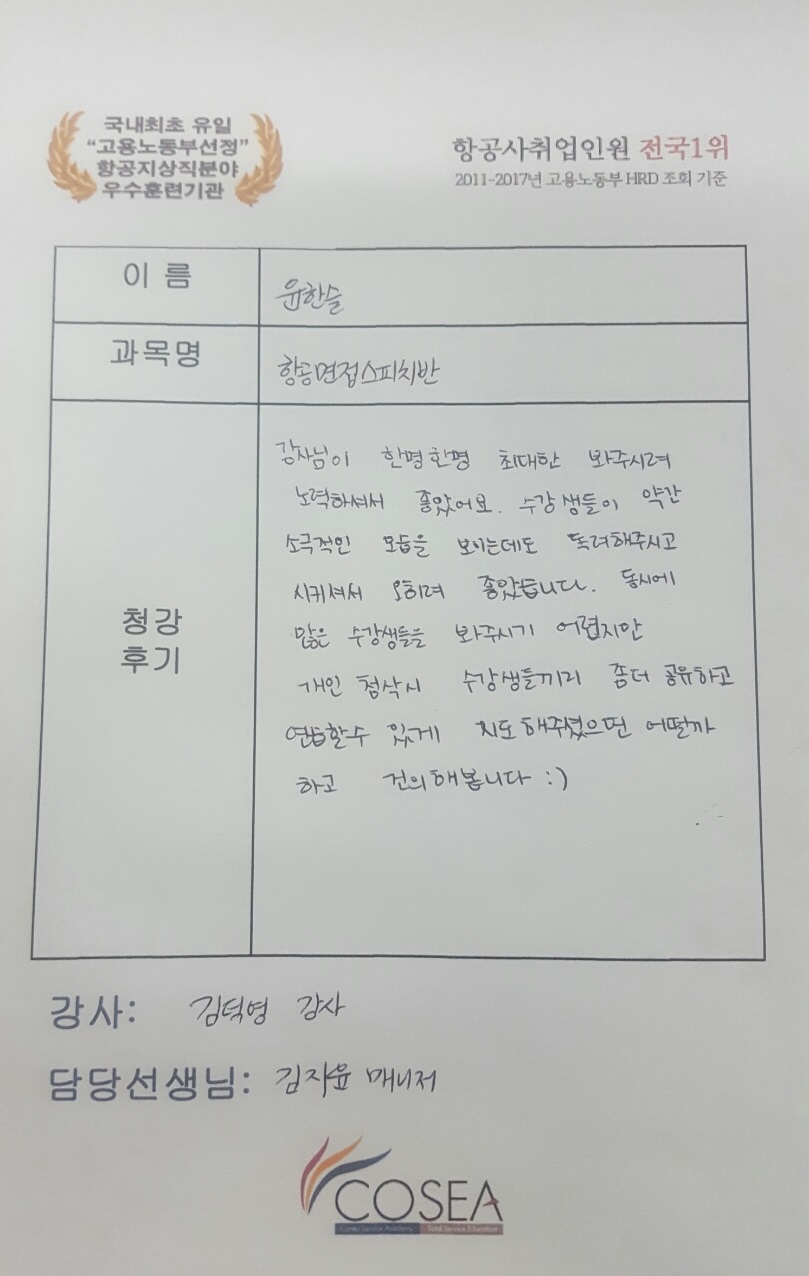 국내최초 유일
“고용노동부선정”
항공지상직분야
우수훈련기관
항공사취업인원 전국1위
2011-2017년 고용노동부 HRD 조회 기준
이 름
윤한슬
과목명
항공면접스피치반
청강
후기
강사님이 한명한명 최대한 봐주시려
노력하셔서 좋았어요. 수강생들이 약간
소극적인 모습을 보이는데도 독려해주시고
시키셔서 오히려 좋았습니다. 동시에
많은 수강생들을 봐주시기 어렵지만
개인 첨삭시 수강생들끼리 좀더 공유하고
연습할수 있게 지도해주셨으면 어떨까
하고 건의해봅니다 :)
강사: 김덕영 강사
담당선생님: 김자윤 매니저
COSEA
Korea Service Academy Total Service Education